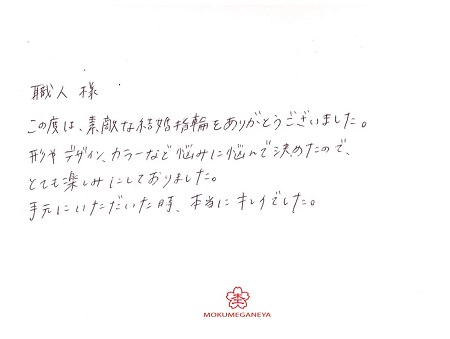 職人 様
この度は、素敵な結婚指輪をありがとうございました。
形や デザイン、カラーなど 悩みに悩んで決めたので、
とても楽しみにしておりました。
手元にいただいた時、本当に キレイでした。
MOKUMEGANEYA